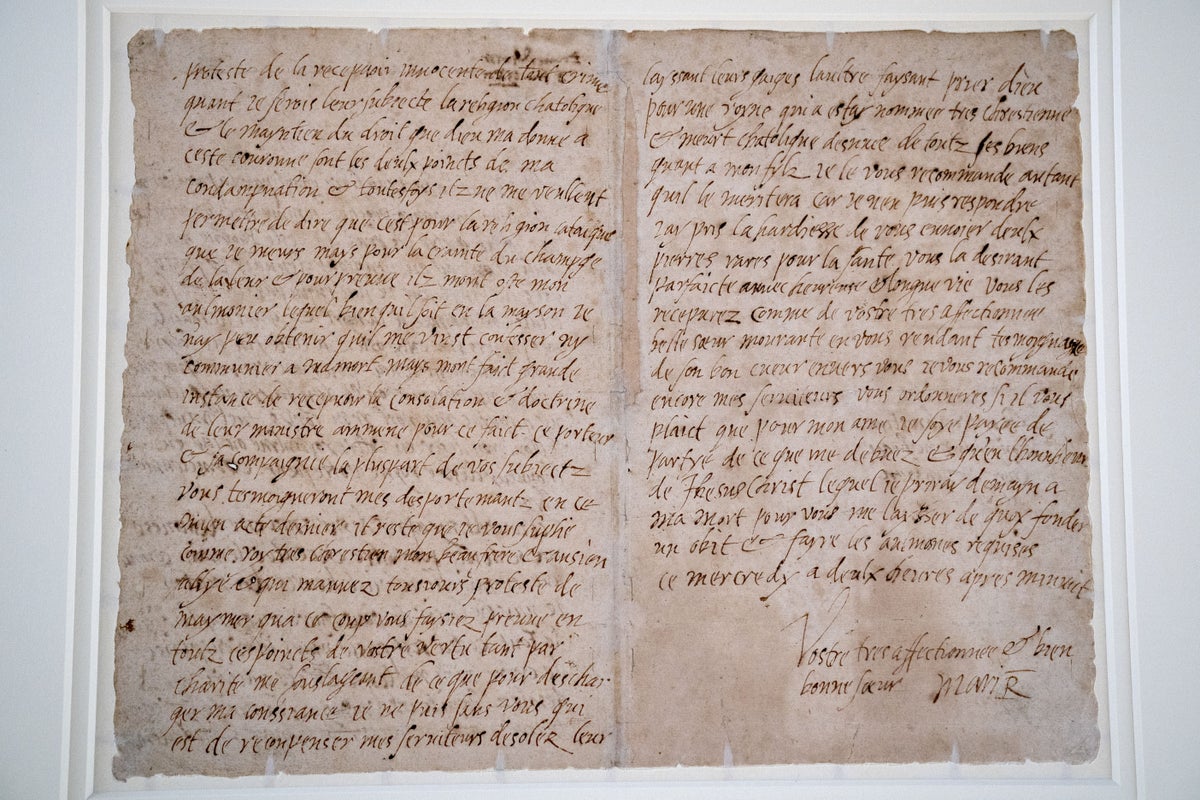 proteste de la recepvoir innocente de tout crime
quant je serois leur subiecte la religion chatolique
& le mayntien du droit que dieu ma donne a
ceste couronne sont les deulx poincts de ma
condampnation & toutesfoys ilz ne me veullent
permettre de dire que cest pour la religion catolique
que je meurs mays pour la crainte du champge
de la leur & pour preuue ilz mont oste mon
aulmonier lequel bien quil soit en la mayson je
nay peu obtenir quil me vinst confesser ny
communier a ma mort mays mont faict grande
instance de recepvoir la consolation & doctrine
de leur ministre ammene pour ce faict ce porteur
& sa compaignie la pluspart de vos subiectz
vous tesmoigneront mes desportemantz en ce
mien acte dernier il reste que je vous suplie
comme roy tres chrestien mon beau frere & ansien
allye & qui mauuez tousiours proteste de
maymer qua ce coup vous faysiez preuue en
toutz ces poincts de vostre vertu tant par
charite me soulageant de ce que pour deschar
ger ma conssiance je ne puis sans vous qui
est de reconpenser mes serviteurs desolez leur
layssant leurs gaiges laultre faysant prier dieu
pour une royne qui a estay nommee tres chrestienne
& meurt chatolique desnuee de toutz ses biens
quant a mon filz je le vous recommande autant
quil le meritera car je nen puis respondre
jay pris la hardiesse de vous enuoier deulx
pierres rares pour la sante vous la desirant
parfaicte auuec heureuse & longue vie vous les
receparez comme de vostre tres affectionnee
belle sœur mourante en vous rendant tesmoygnage
de son bon cueur enuers vous je vous recommande
encore mes serviteurs vous ordonneres si il vous
plaict que pour mon ame je soye payee de
partye de ce que me debuez & quen lhonneur
de Jhesus Christ lequel je priray demayn a
ma mort pour vous me laysser de quoy fonder
un obit & fayre les aulmones requises
ce mercredy a deulx heures apres minuict
Vostre tres affectionnee & bien
bonne sœur MariR